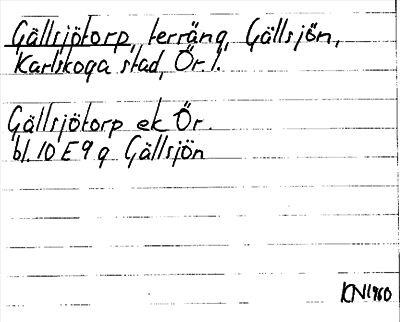 Gällsjötorp, terräng, Gällsjön,
Karlskoga stad, Ör. l.
Gällsjötorp ek Ör.
bl. 10 E 9 g Gällsjön
KN1960